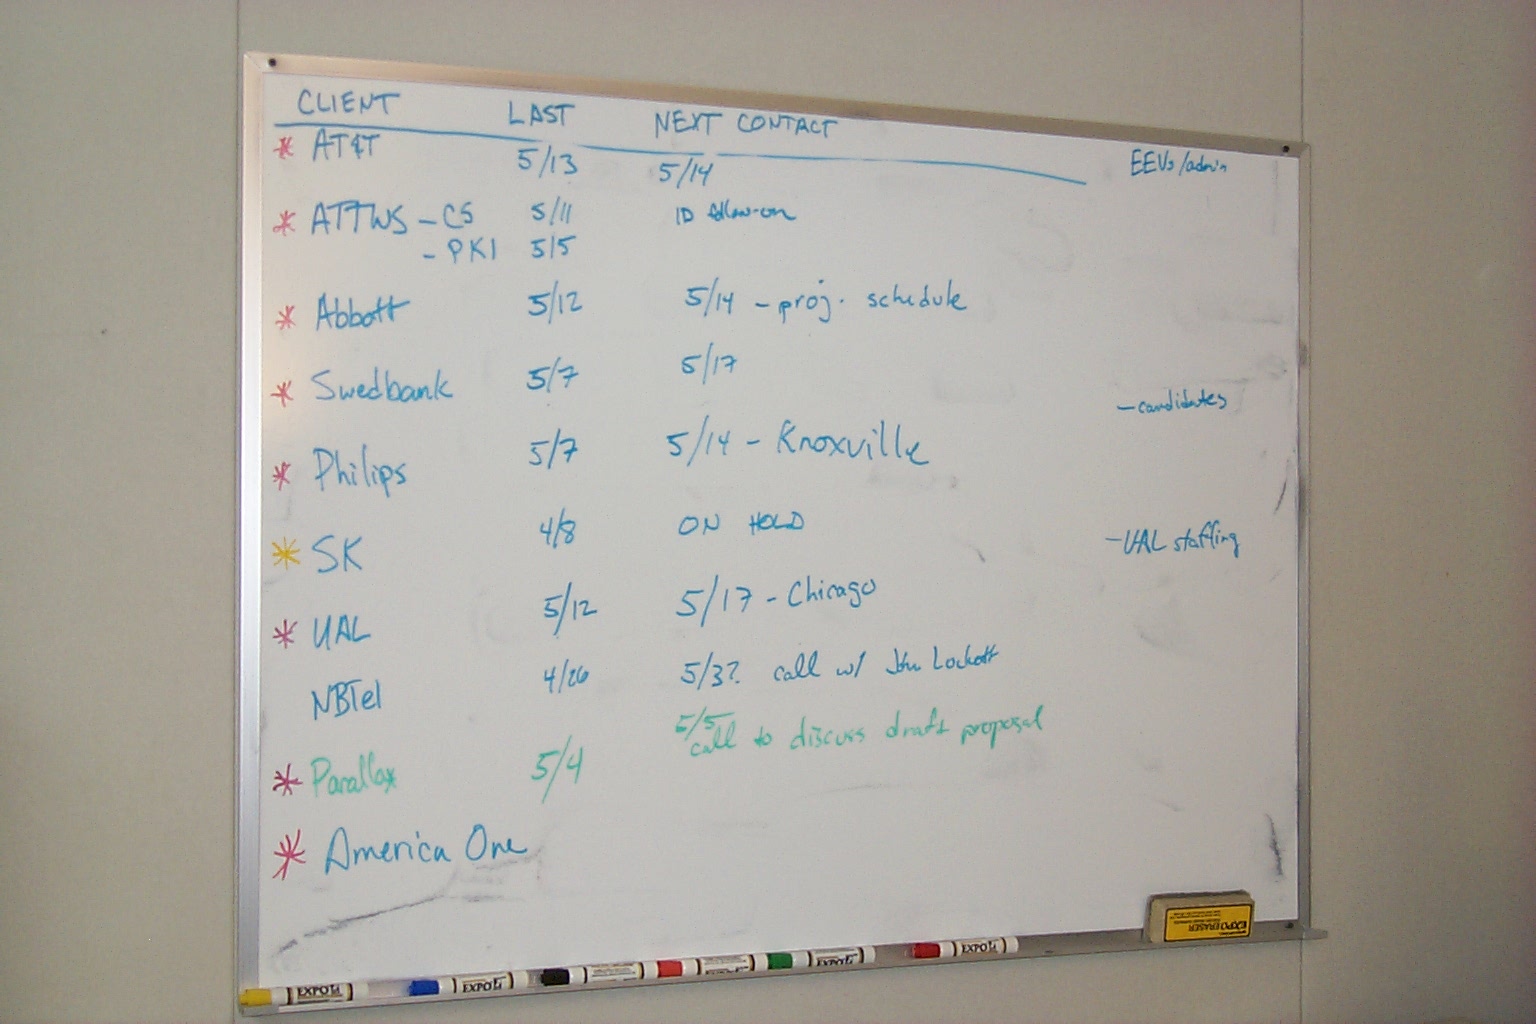 CLIENT LAST NEXT CONTACT
* AT&T 5/13 5/14 EEVs/admin
* ATTWS - CS 5/11 ID follow-on
- PKI 5/5
* Abbott 5/12 5/14 - proj. schedule
* Swedbank 5/7 5/17 - candidates
* Philips 5/7 5/14 - Knoxville
* SK 4/8 ON HOLD - UAL staffing
* UAL 5/12 5/17 - Chicago
NBTel 4/26 5/3? call w/ John Lockett
5/5
* Parallax 5/4 call to discuss draft proposal
* America One
EXPO ERASER
EXPO
EXPO
EXPO
EXPO